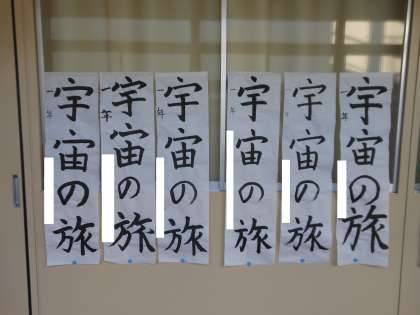 宇宙の旅
一年
宇宙の旅
一年
宇宙の旅
一年
宇宙の旅
一年
宇宙の旅
一年
宇宙の旅
一年